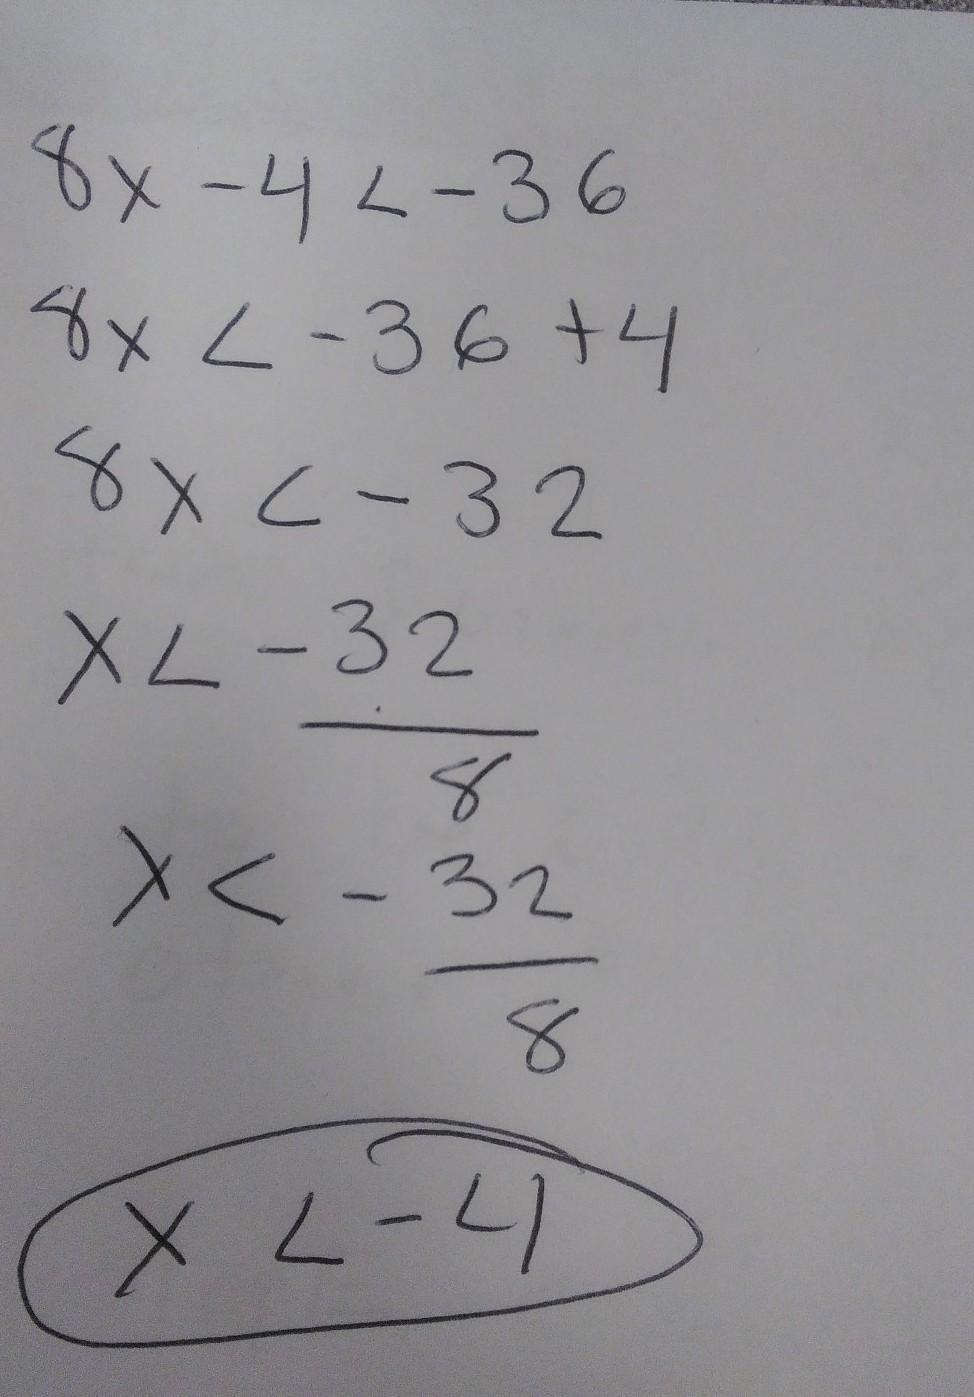 8x - 4 < - 36
8x < - 36 + 4
8x < - 32
x < - 32
8
x < - 32
8
x < - 4